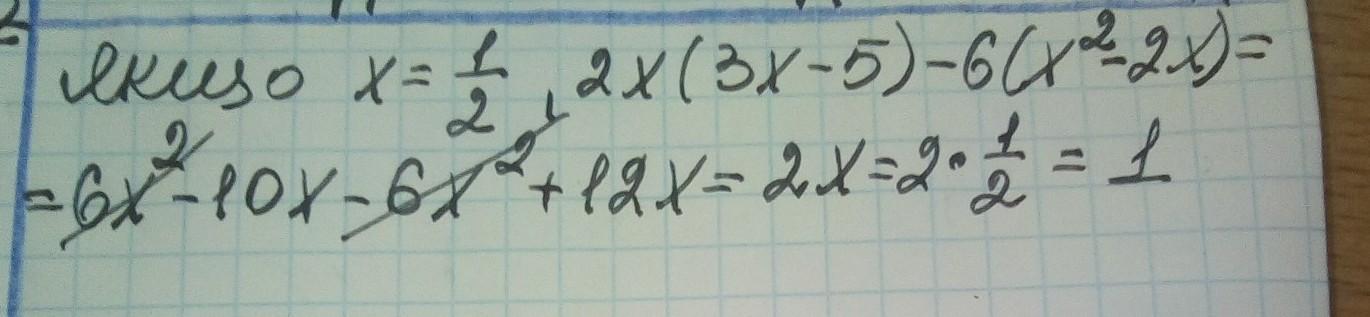 якщо x = 1/2, 2x(3x-5)-6(x²-2x)=
=6x²-10x-6x²+12x=2x=2·1/2=1